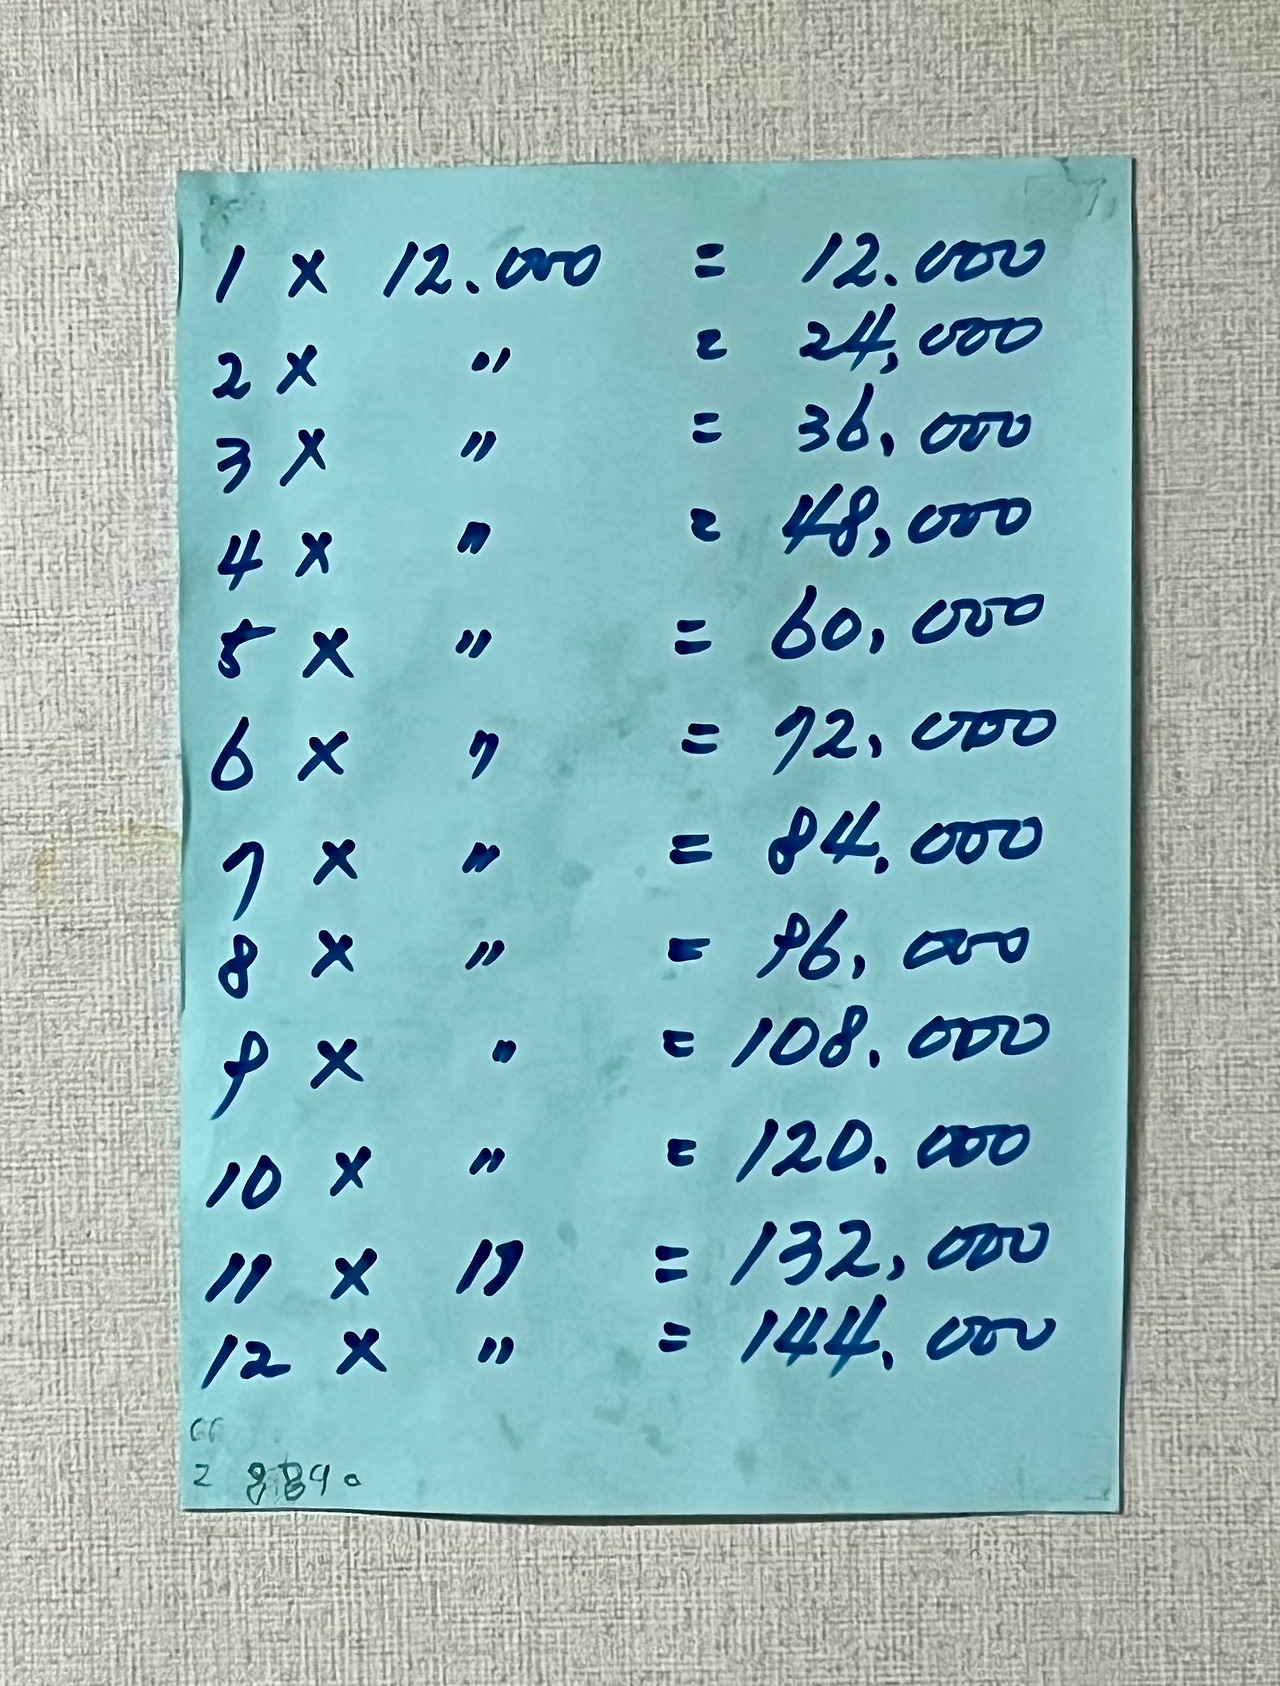 1 × 12.000 = 12.000
2 × " = 24,000
3 × " = 36,000
4 × " = 48,000
5 × " = 60,000
6 × " = 72,000
7 × " = 84,000
8 × " = 96,000
9 × " = 108.000
10 × " = 120.000
11 × " = 132,000
12 × " = 144,000